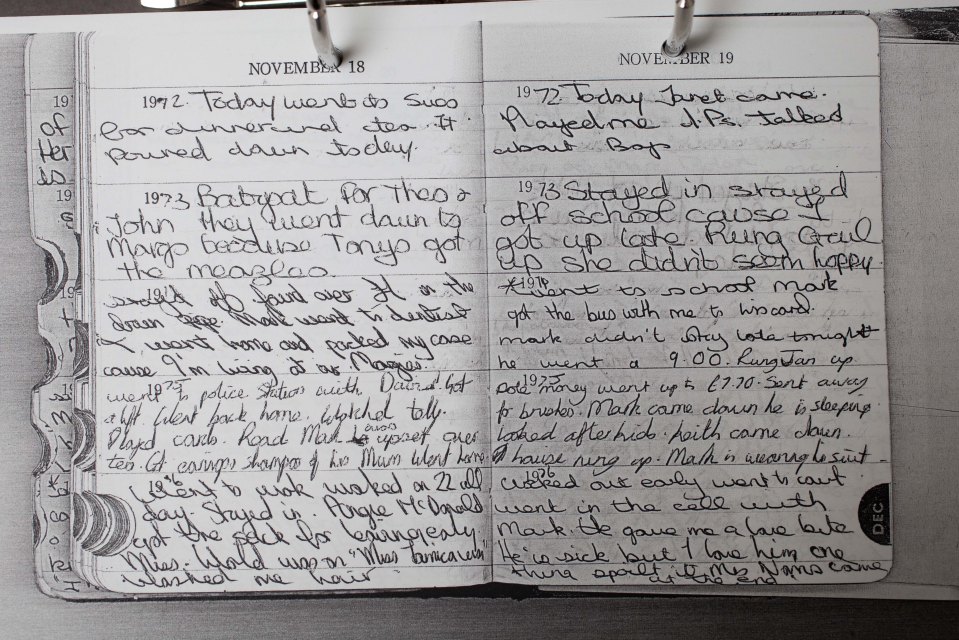 NOVEMBER 18
1972. Today went to Sues
for dinner and tea. It
poured down today.
1973 Babysat for Theo &
John they went down to
Margo because Tonys got
the meazles
off found over It in the
down Mark went to dentist
I went home and packed my case
cause I'm living at as Margies.
1975
went to police Station with David Got
a lift. Went back home. Watched telly.
Played cards. Road Mark upset over
tea. Got earings shampoo of his Mum Went home
1976
Went to work worked on 22 all
day. Stayed in. Angie McDonald
got the sack for leaving early
Miss. World was on "Miss Jamaica win"
Washed me hair
NOVEMBER 19
1972 Today Janet came.
Played me J.Ps. Talked
about Bop
1973 Stayed in stayed
off school cause I
got up late. Rung Gail
up she didn't seem happy
1974
went to school Mark
got the bus with me to
Mark didn't stay late tonight
he went a 9.00. Rung Jan up
1975
dole money went up to £7.70. Sent away
for brushes. Mark came down he is sleeping
Looked after kids. Faith came down.
house rung up. Mark is wearing he suit
1976
Worked out early went to court
went in the cell with
Mark. He gave me a love bite
He is sick but I love him one
thing spoilt it Mrs Nans came
at the end
DEC